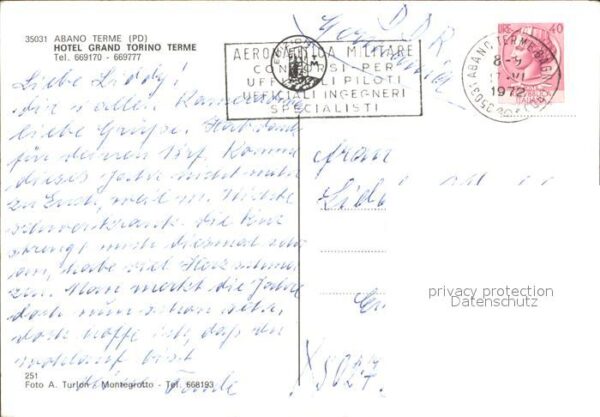 35031 ABANO TERME (PD)
HOTEL GRAND TORINO TERME
Tel. 669170 - 669777
DDR
AERONAUTICA MILITARE
CONCORSI PER
UFFICIALI PILOTI
UFFICIALI INGEGNERI
SPECIALISTI
40
35031 ABANO TERME
8-9
VI
1972
Liebe Liddy!
dir u. allen
liebe Grüße. Hab Dank
für deinen Brf. Komme
dieses Jahr nicht mehr
zu Euch, weil m. Nichte
schwerkrank. Die Kur
strengt mich diesmal sehr
an, habe viel Herzschmer
zen. Man merkt die Jahre
doch nun schon sehr,
doch hoffe ich, daß du
wohlauf bist
Frau
privacy protection
Datenschutz
251
Foto A. Turlon - Montegrotto - Tel. 668193